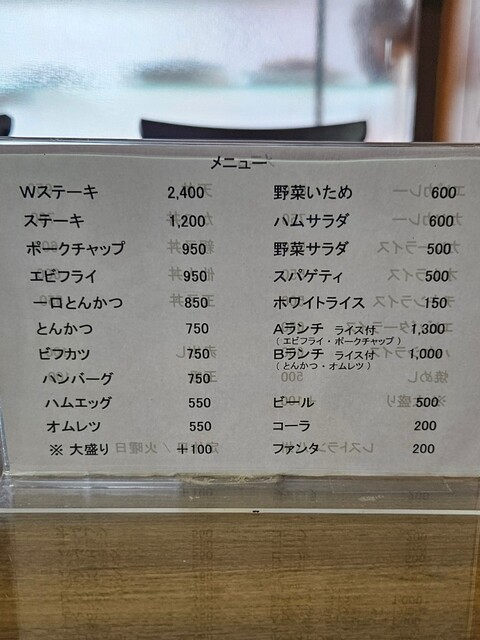 メニュー
Wステーキ 2,400
ステーキ 1,200
ポークチャップ 950
エビフライ 950
一口とんかつ 850
とんかつ 750
ビフカツ 750
ハンバーグ 750
ハムエッグ 550
オムレツ 550
※ 大盛り +100
野菜いため 600
ハムサラダ 600
野菜サラダ 500
スパゲティ 500
ホワイトライス 150
Aランチ ライス付 1,300
(エビフライ・ポークチャップ)
Bランチ ライス付 1,000
(とんかつ・オムレツ)
ビール 500
コーラ 200
ファンタ 200